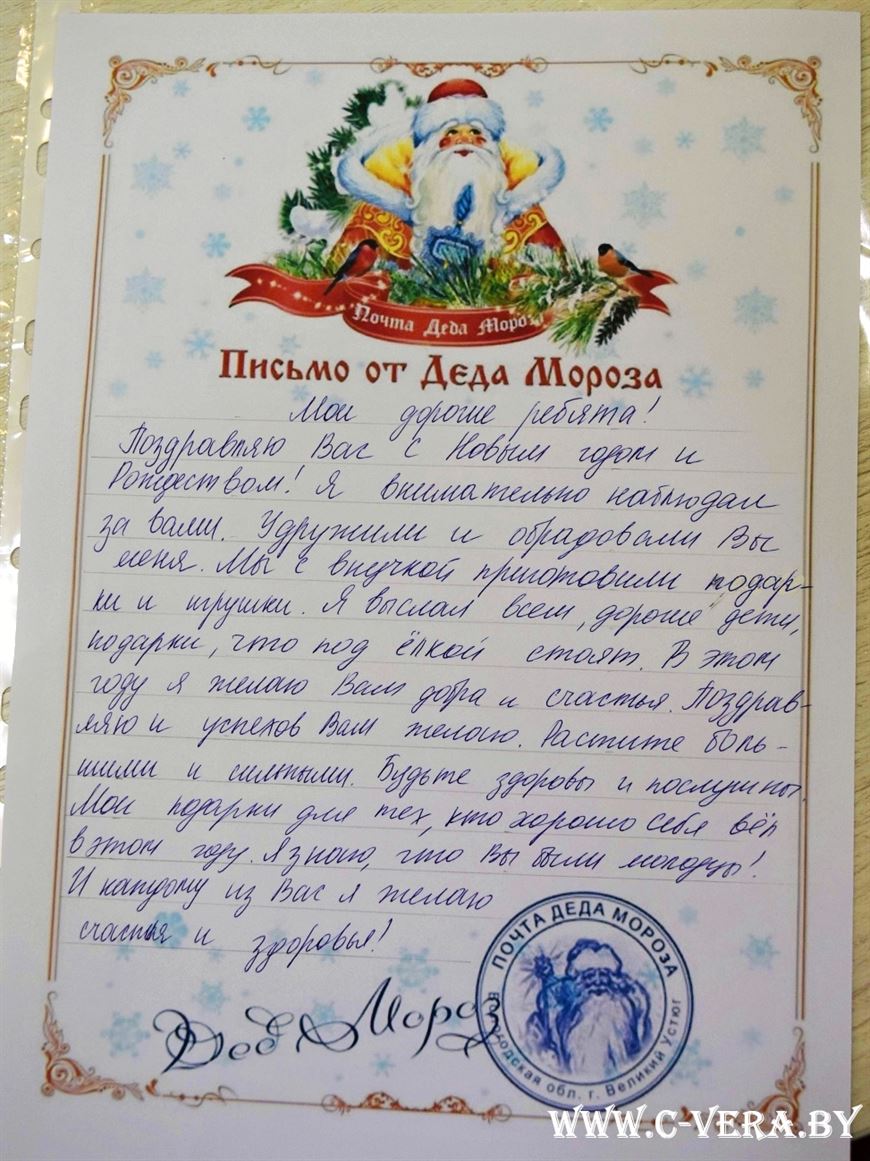 Почта Деда Мороза
Письмо от Деда Мороза
Мои дорогие ребята!
Поздравляю Вас с Новым годом и
Рождеством! Я внимательно наблюдал
за вами. Удружили и обрадовали Вы
меня. Мы с внучкой приготовили подар-
ки и игрушки. Я выслал всем, дорогие дети,
подарки, что под ёлкой стоят. В этом
году я желаю Вам добра и счастья. Поздрав-
ляю и успехов Вам желаю. Растите боль-
шими и сильными. Будьте здоровы и послушны.
Мои подарки для тех, кто хорошо себя вёл
в этом году. Я знаю, что Вы были молодцы!
И каждому из Вас я желаю
счастья и здоровья!
Дед Мороз
ПОЧТА ДЕДА МОРОЗА
Вологодская обл. г. Великий Устюг
WWW.C-VERA.BY